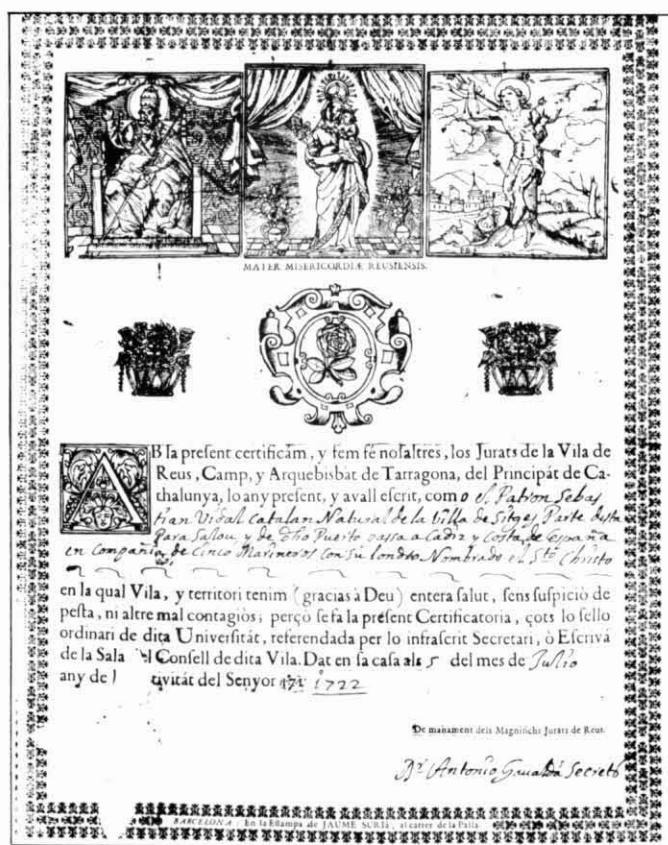 MATER MISERICORDIÆ REUSIENSIS.
AB la present certificám, y fem fé nosaltres, los Jurats de la Vila de
Reus, Camp, y Arquebisbát de Tarragona, del Principát de Ca-
thalunya, lo any present, y avall escrit, com o el Patron Sebas
tian Vidal Catalan Natural de la Villa de Sitges Parte desta
Para Salou, y de dho Puerto passa a Cadiz y Costa de españa
en Compañia de Cinco Marineros con su londro Nombrado el Sto Christo
en la qual Vila, y territori tenim (gracias à Deu) entera salut, sens suspiciò de
pesta, ni altre mal contagiòs; perçò se fa la present Certificatoria, çots lo sello
ordinari de dita Universitát, referendada per lo infrascrit Secretari, ò Escrivá
de la Sala el Consell de dita Vila. Dat en sa casa als 5 del mes de Julio
any de tivitát del Senyor 1722
De manament dels Magnifichs Jurats de Reus.
Antonio Gavaldá Secretº
BARCELONA: En la Estampa de JAUME SURIÁ, al carrer de la Palla